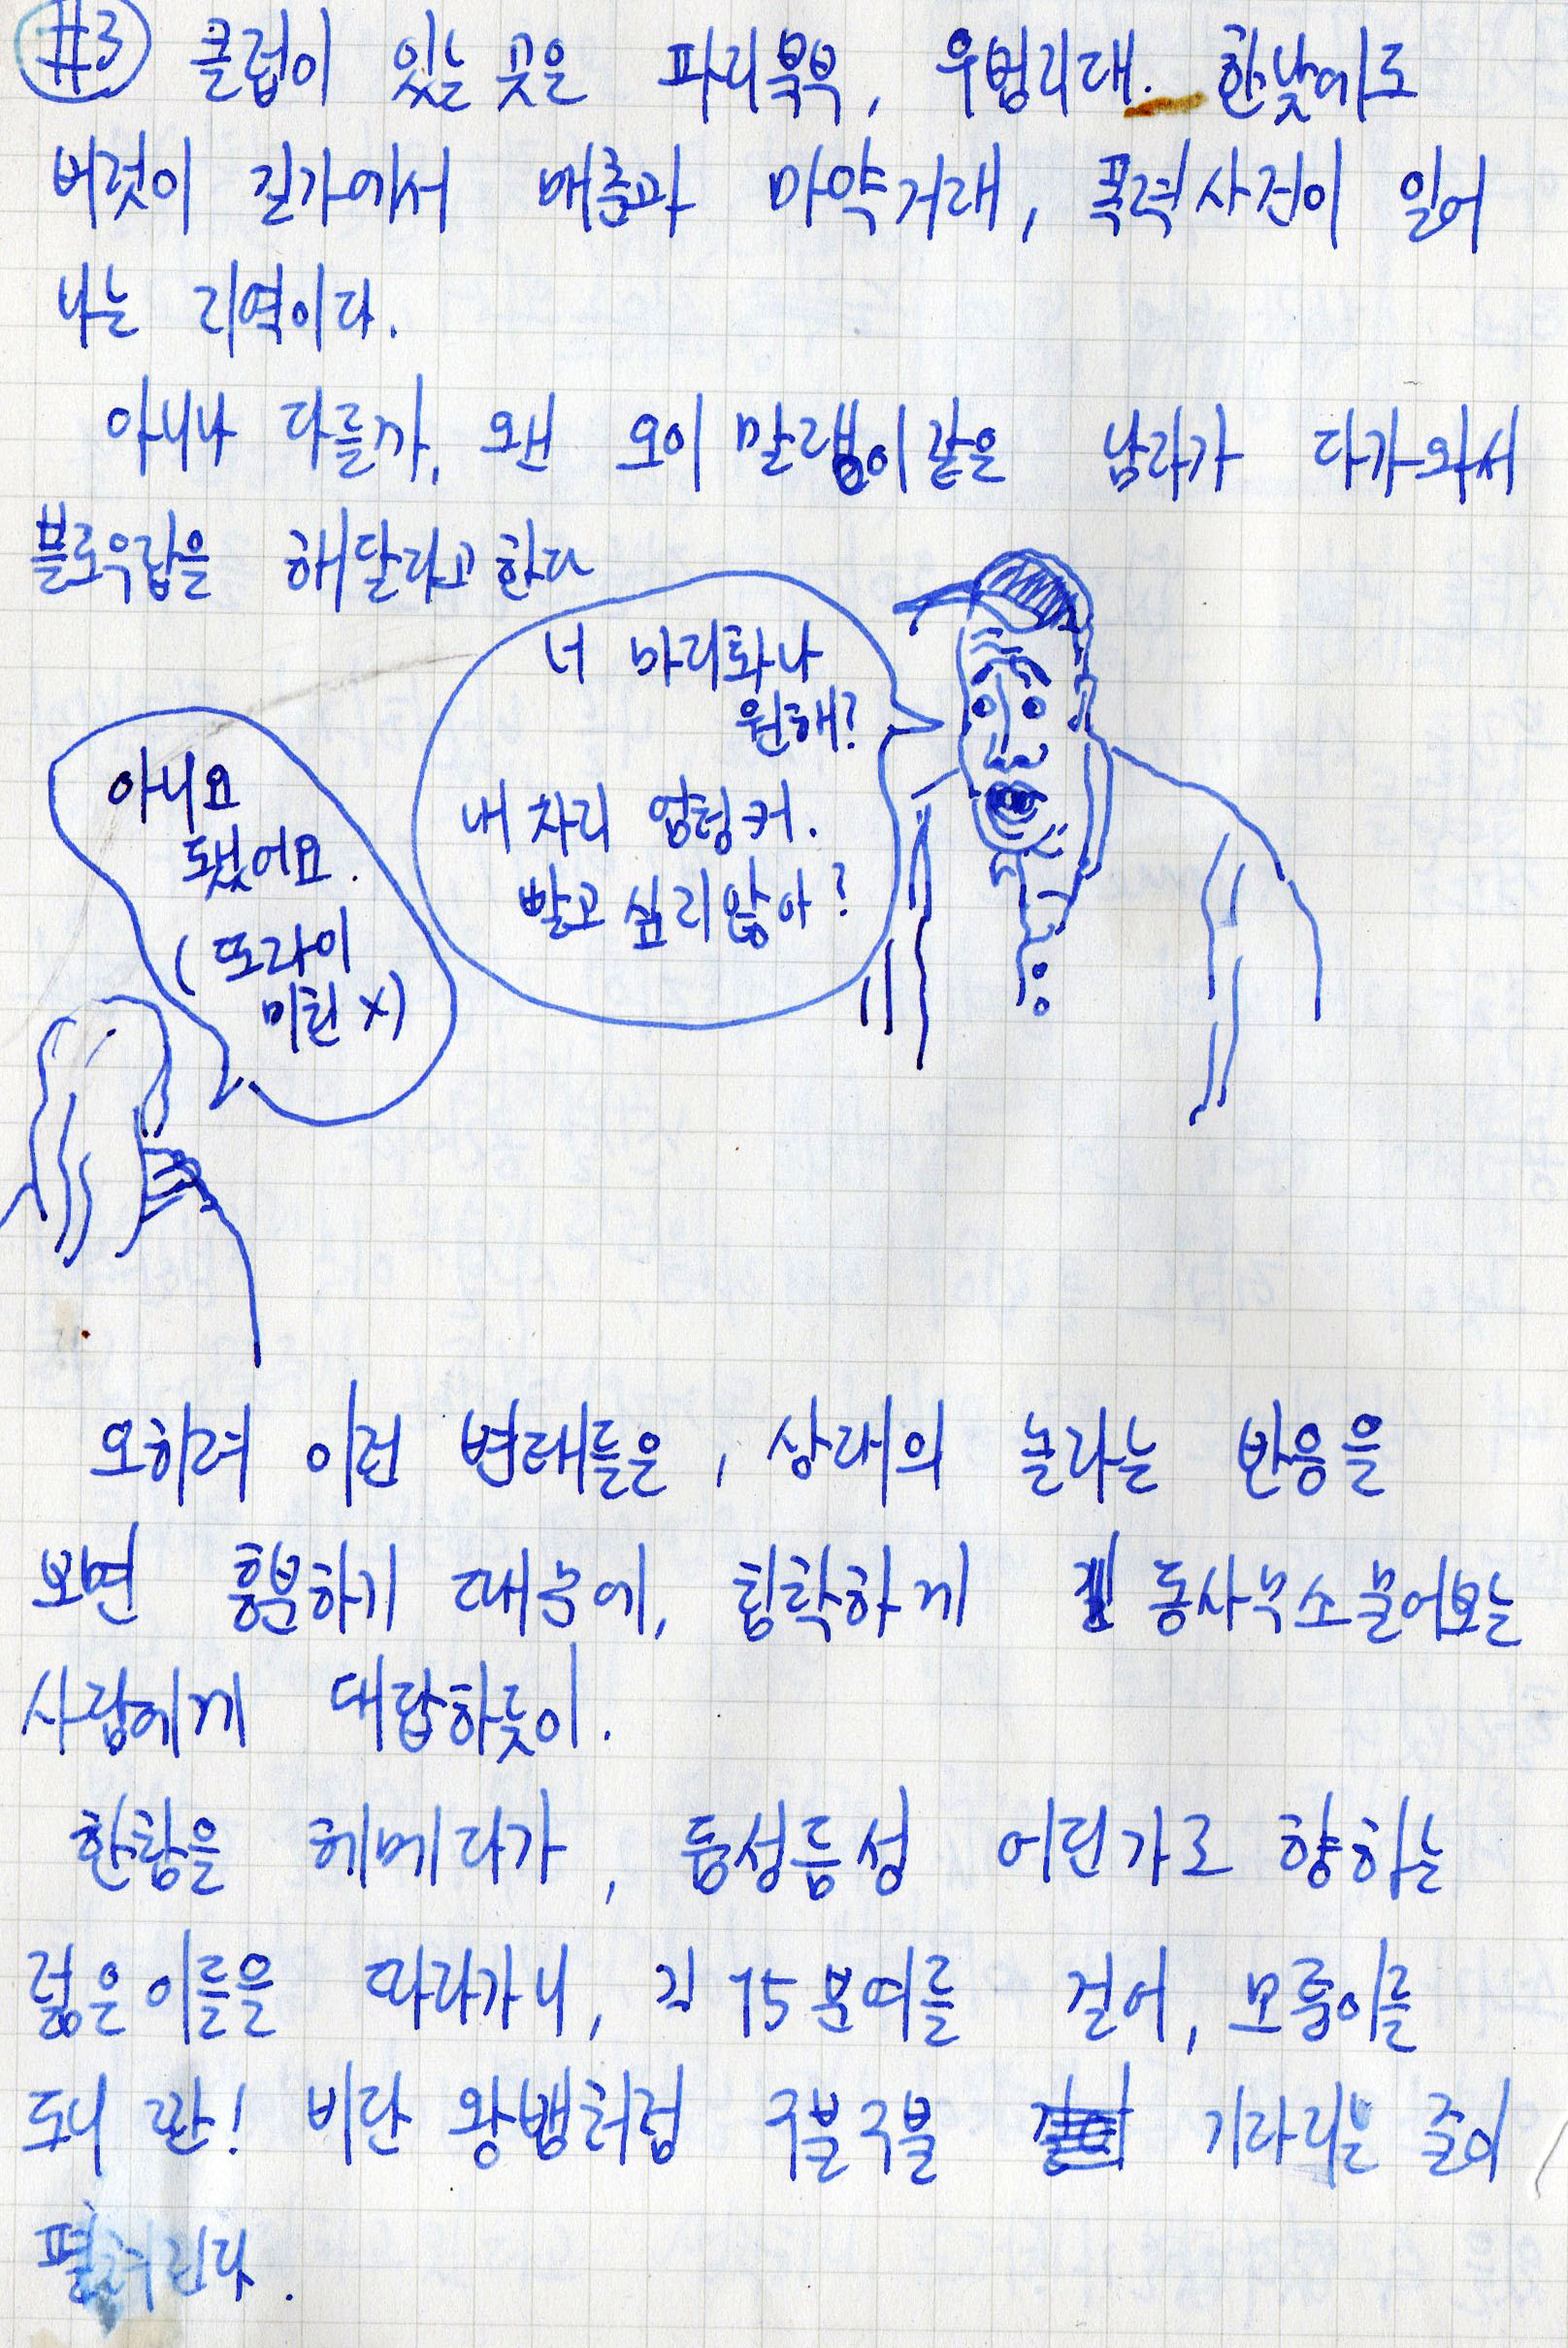 #3 클럽이 있는 곳은 파리북부, 우범지대. 한낮에도
버젓이 길가에서 매춘과 마약거래, 폭력사건이 일어
나는 지역이다.
아니나 다를까, 왠 오이 말랭이같은 남자가 다가와서
블로우잡을 해달라고 한다
너 마리화나
원해?
내 자지 엄청 커.
빨고 싶지않아?
아니요
됐어요.
(또라이
미친 X)
오히려 이런 변태들은, 상대의 놀라는 반응을
보면 흥분하기 때문에, 침착하게 동사무소 물어보는
사람에게 대답하듯이.
한참을 헤메다가, 듬성듬성 어딘가로 향하는
젊은이들을 따라가니, 15분여를 걸어, 모퉁이를
도니 짠! 비단 왕뱀처럼 구불구불 기다리는 줄이
펼쳐진다.